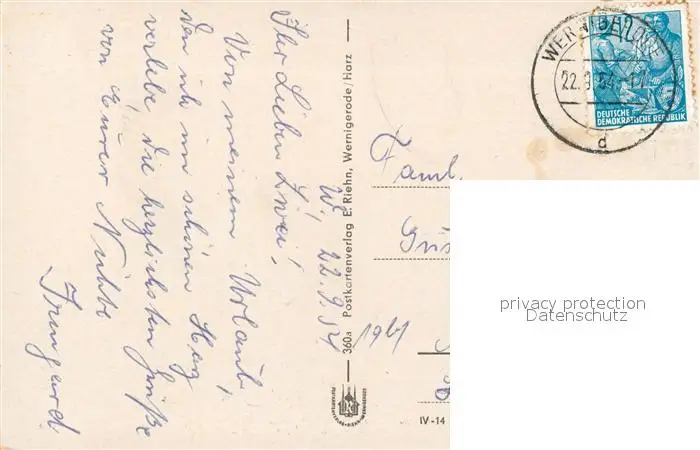 W, 22.9.54
Ihr Lieben Zwei!
Von meinem Urlaub,
den ich im schönen Harz
verlebe die herzlichsten Grüße
von Eurer Nichte
Irmgard
360a Postkartenverlag E. Riehn, Wernigerode/Harz
WERNIGERODE
22.9.54
d
DEUTSCHE
DEMOKRATISCHE REPUBLIK
Faml.
IV-14
privacy protection
Datenschutz